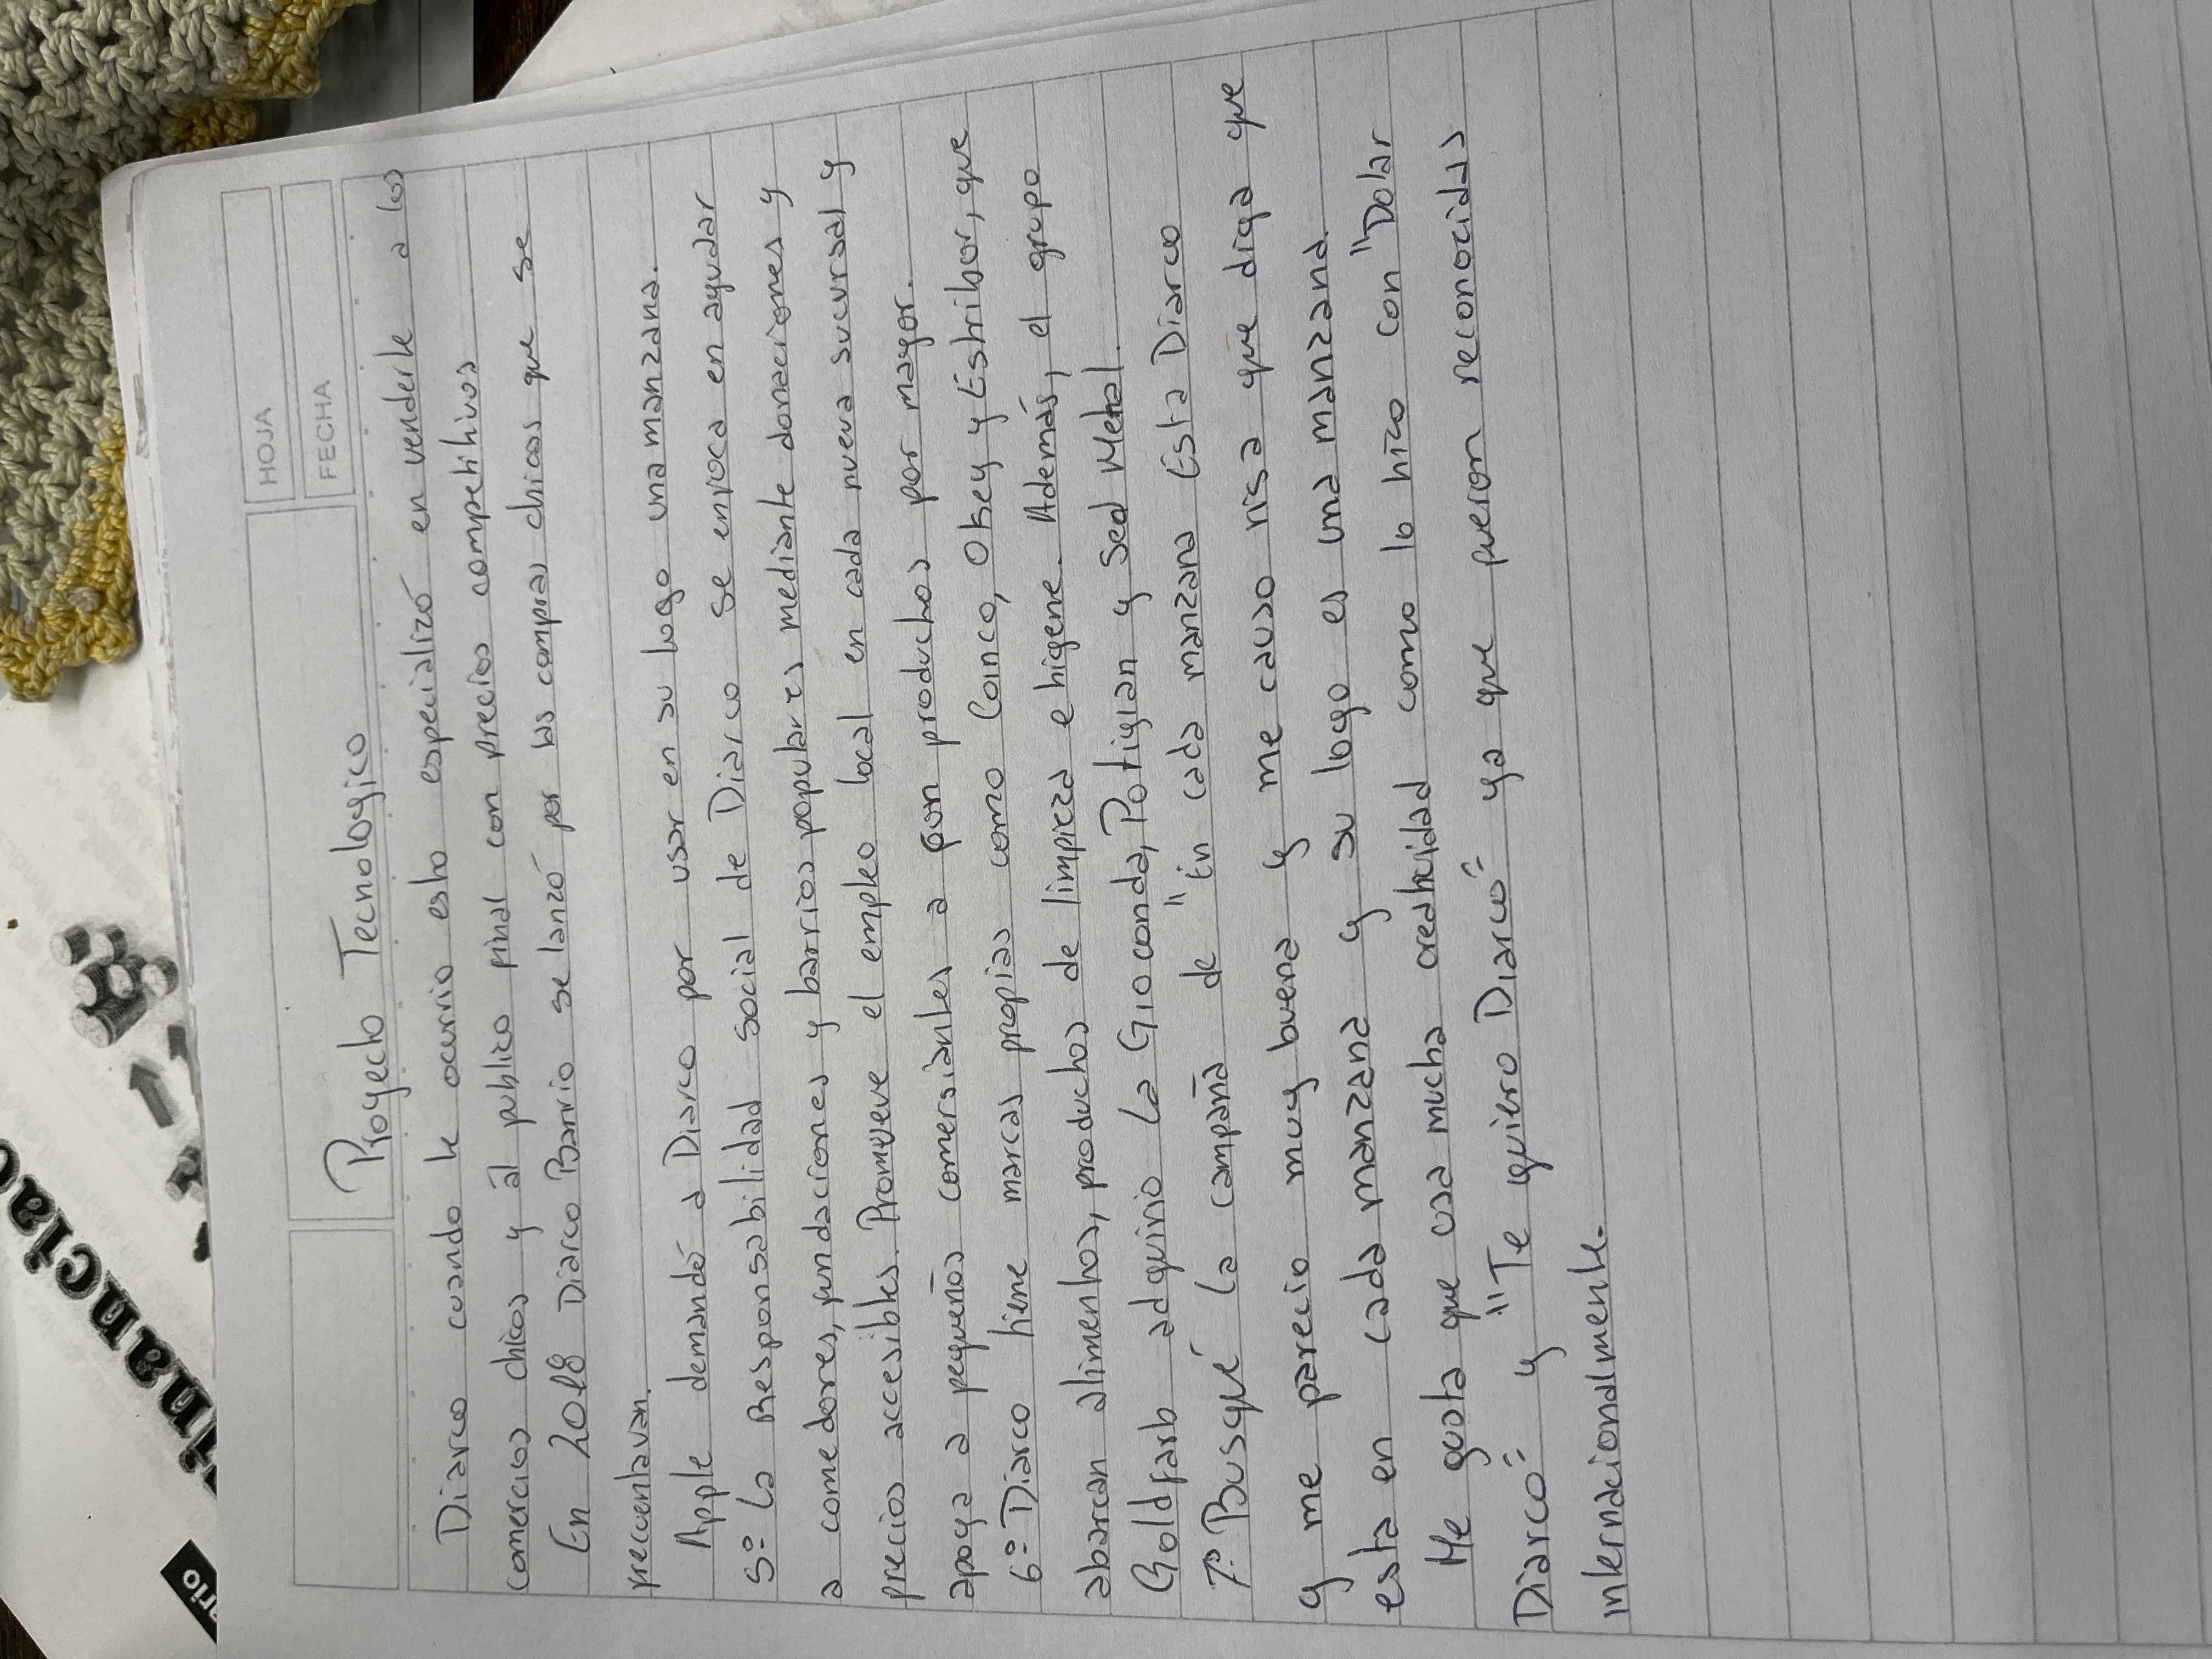 HOJA
FECHA
Proyecto Tecnologico
Diarco cuando le ocurrio esto especializó en venderle a los
comercios chicos y al publico final con precios competitivos
En 2018 Diarco Barrio se lanzó por las compras chicas que se
frecuentavan.
Apple demandó a Diarco por usar en su logo una manzana.
5º La Responsabilidad social de Diarco se enfoca en ayudar
a comedores, fundaciones y barrios populares mediante donaciones y
precios accesibles. Promueve el empleo local en cada nueva sucursal y
apoya a pequeños comersiantes a con productos por mayor.
6º Diarco tiene marcas propias como Coinco, Okey y Estribor, que
abarcan alimentos, productos de limpieza e higene. Además, el grupo
Goldfarb adquirio La Gioconda, Potigian y Sed Metal.
7º Busqué la campaña de "En cada manzana Esta Diarco
y me parecio muy buena y me causo risa que diga que
esta en cada manzana y su logo es una manzana.
Me gusta que usa mucha creatividad como lo hico con "Dolar
Diarco" y "Te quiero Diarco" ya que fueron reconocidas
internacionalmente.
inanciac
ario